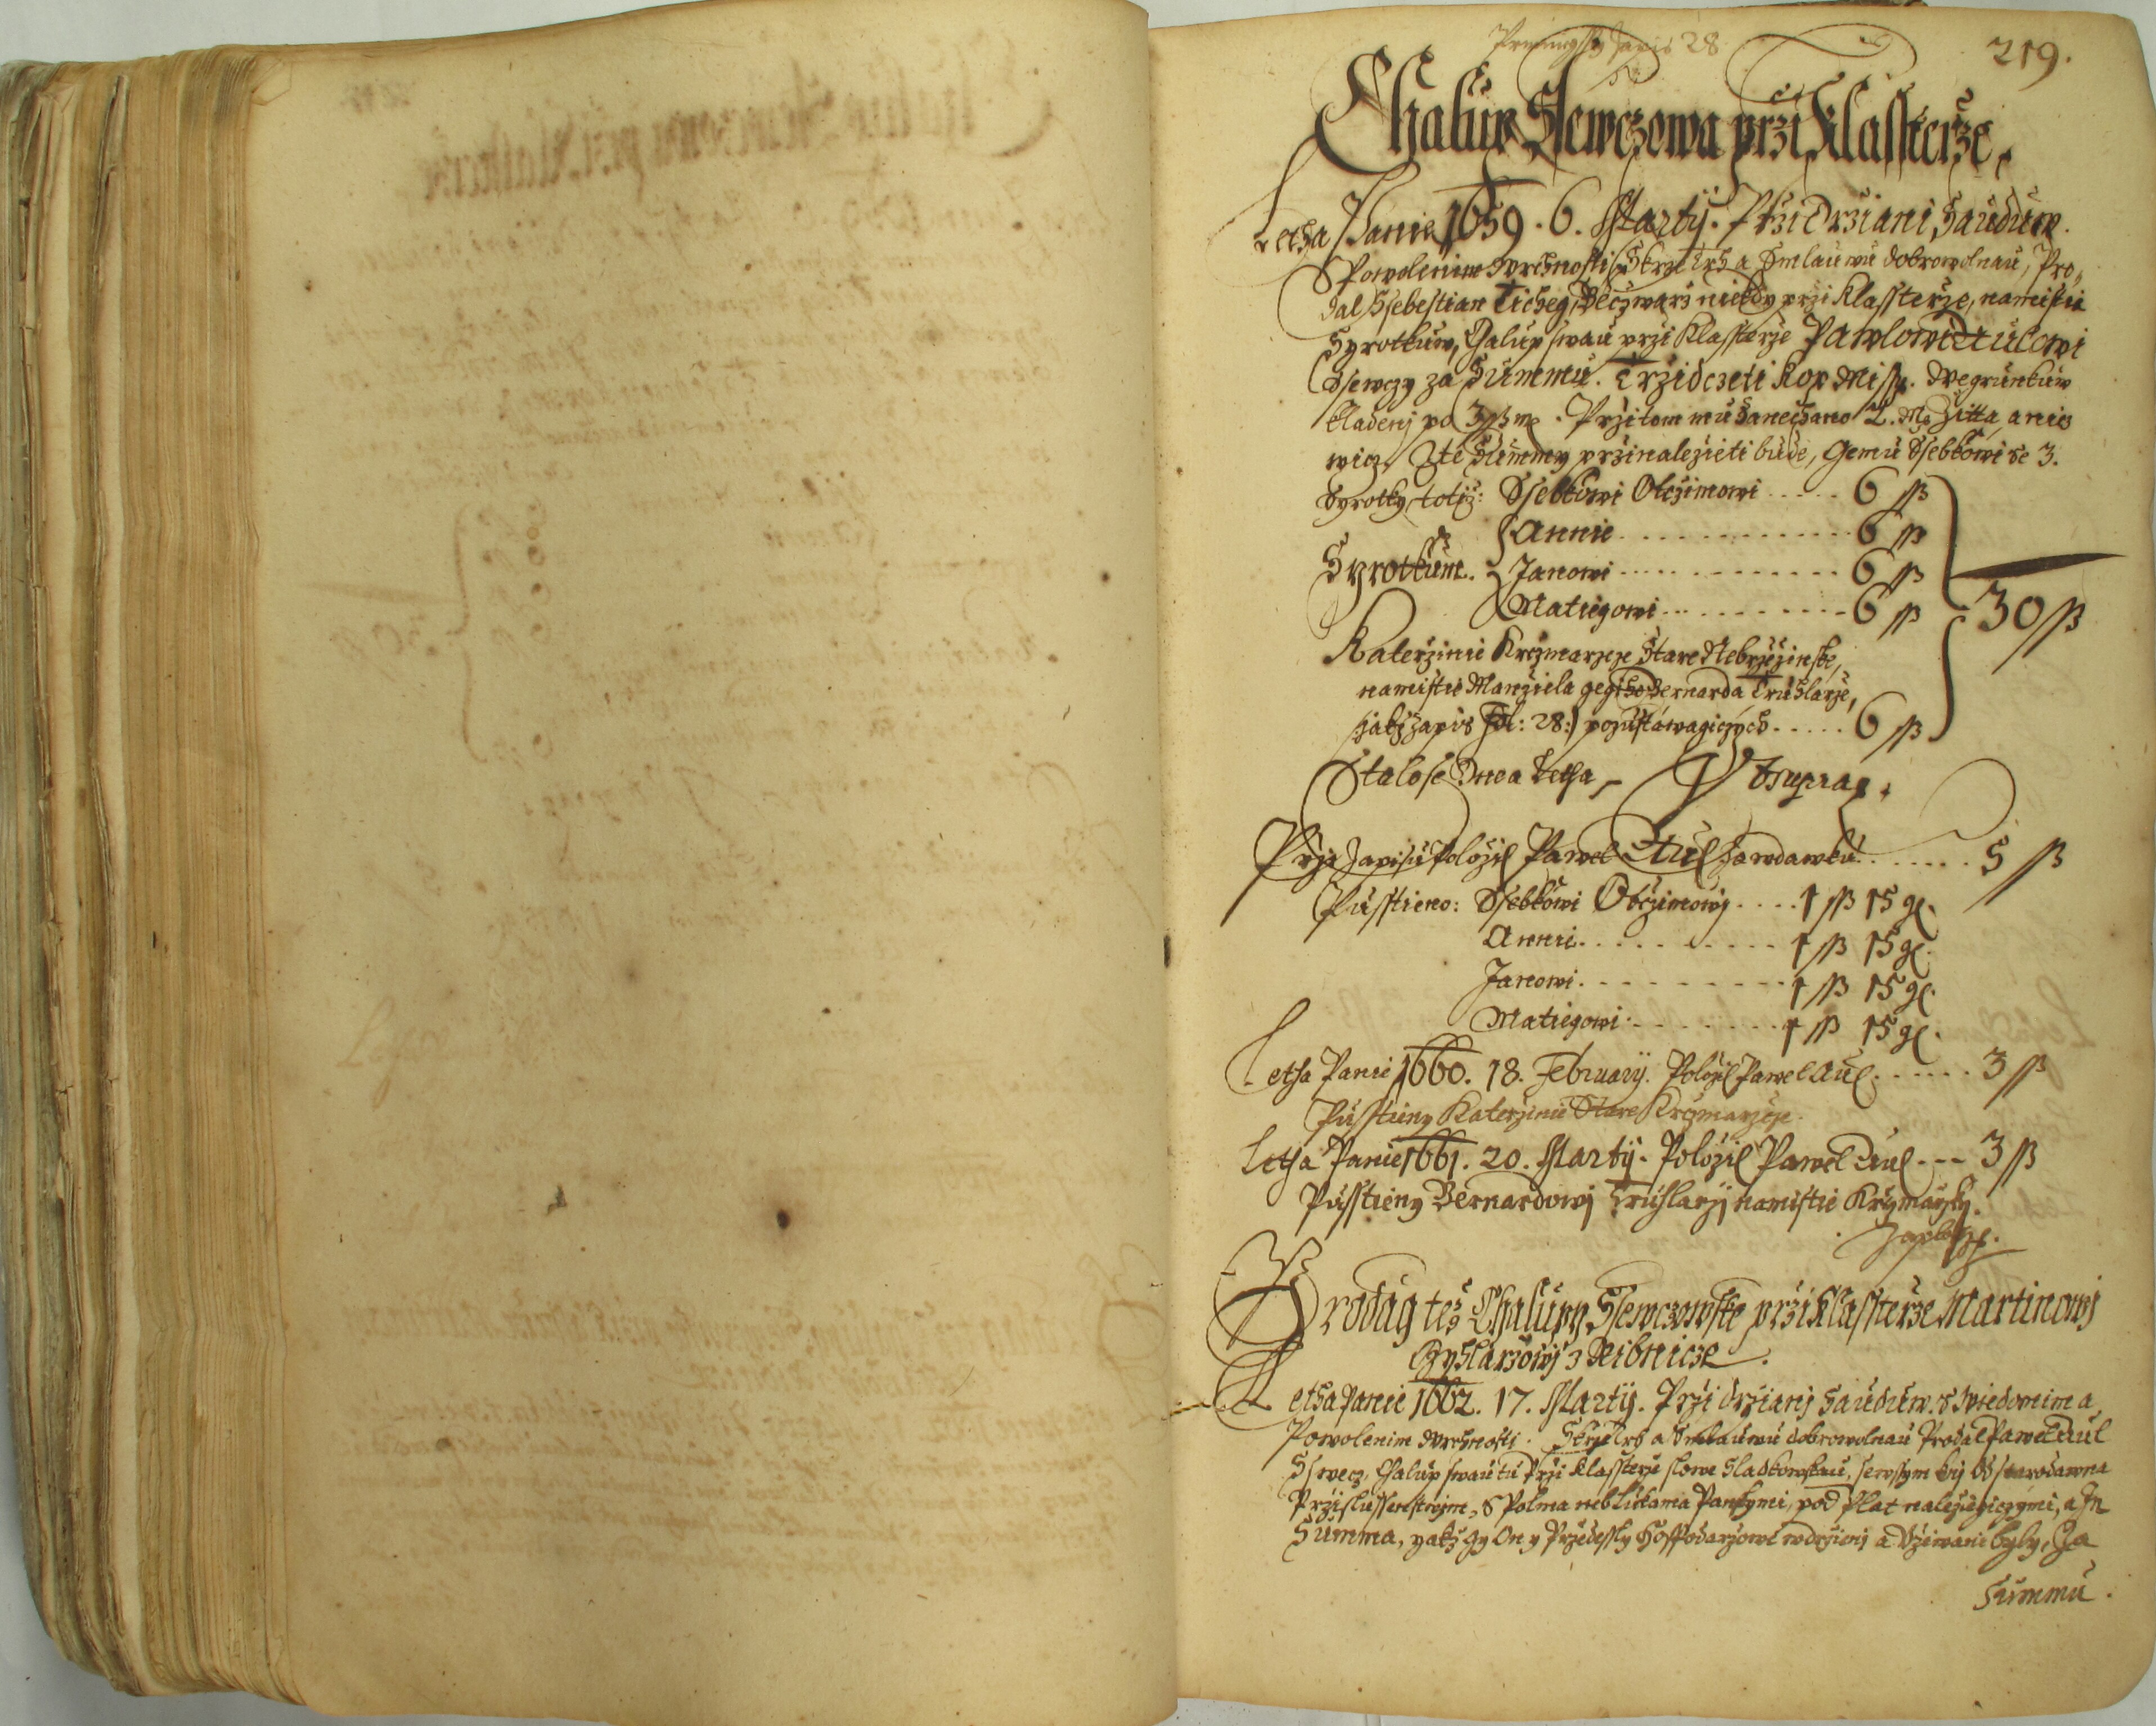 219.
Chalup Ssewczowa przi Klassterze,
Letha Panie 1659. 6. Marty. Przi Drziani Saudum
S Powolenim Wrchnosti Skrze Trh a Smlauwu dobrowolnau, Pro,
dal Ssebestian Ticheg, Beczwarz niekdy przi Klassterze, namistie
Syrotkuw, Chalup swau przi Klassterze Pawlowi Aulowi
Ssewczy za Summu. Trzidczeti kop Miss.
kladenj po 3 ß m. Przitom mu zanechano 2. Mg Zitta, a nicz
wicz. Z te Summy przinalezieti bude, Gemu Ssebkowi se 3.
Syrotky totiz: Ssebkowi Otczimowi ..... 6 ß
Annie ..... 6 ß
Syrotkum. Janowi ..... 6 ß
Matiegowi ..... 6 ß
30 ß
Katerzinie Krczmarzce Stare Nebrzezinske,
namistie Manziela gegiho Bernarda Truhlarze,
yakz zapis Fol: 28: pozustawagiczych ..... 6 ß
Stalose Dne a Letha, Vt supra.
Przi Zapisu Polozil Pawel Aul Zawdawku ..... 5 ß
Pusstieno: Ssebkowi Otczimowj .... 1 ß 15 g.
Annie ..... 1 ß 15 g.
Janowi ..... 1 ß 15 g.
Matiegowi ..... 1 ß 15 g.
Letha Panie 1660. 18. February. Polozil Pawel Aul ..... 3 ß
Pusstieny Katerzinie Stare Krczmarzce.
Letha Panie 1661. 20. Marty. Polozil Pawel Aul --- 3 ß
Pusstieny Bernardowj Truhlarzj namistie Krczmarzky.
Prodag tez Chalupy Ssewczowske przi Klassterze Martinowj
Czyhlarzowj z Ribnicze.
Letha Panie 1662. 17. Marty. Przi Drzianj Saudum. S Wiedomim a
Powolenim Wrchnosti. Skrze Trh a Smlauwu dobrowolnau Prodal Pawel Aul
Sswecz, Chalup swau tu Przi Klassterze slowe Sladkowskau, sewssym kij Od starodawna
Przislussenstwjm, S Polma neb Lukama Panskymi, pod Plat nalezegiczymi, a In
Summa, yakz gy On y Przedessly Hospodarzowe w drzienj a Vziwani byly, Za
Summu.